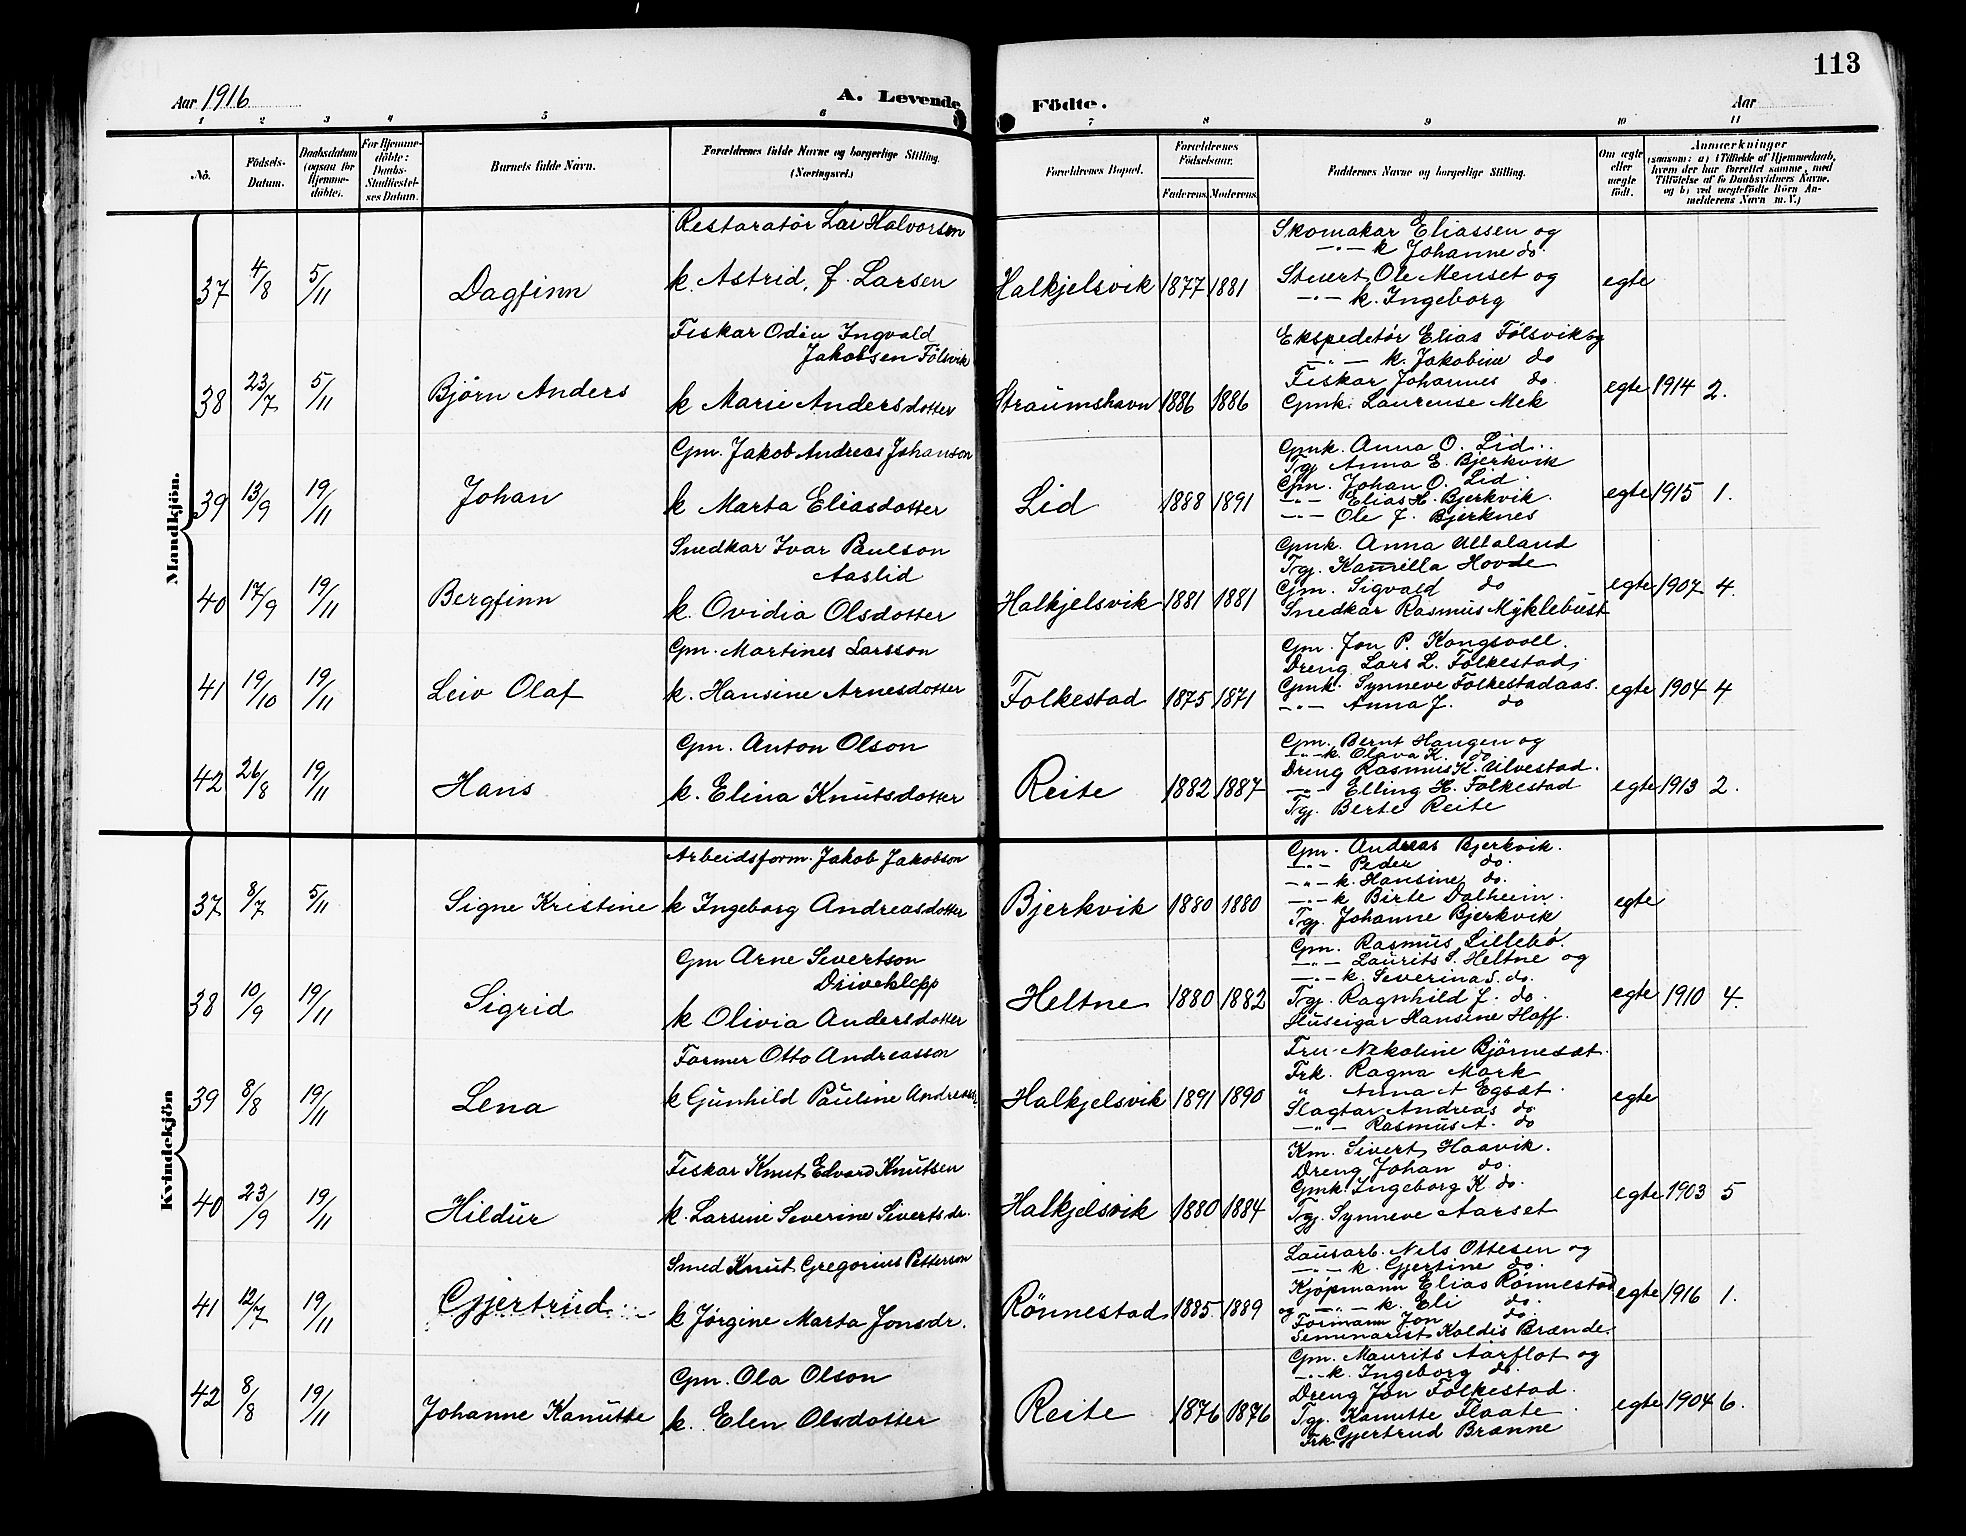 113
Aar 1916
A. Levende Födte.
Aar
1 2 3 4 5 6 7 8 9 10 11
No.
Födsels-Datum.
Daabsdatum (ogsaa for Hjemme-döbte).
For Hjemme-döbte: Daabs-Stadfæstel-ses Datum.
Barnets fulde Navn.
Forældrenes fulde Navne og borgerlige Stilling. (Næringsvei.)
Forældrenes Bopæl.
Forældrenes Födselsaar.
Faderens. Moderens.
Faddernes Navne og borgerlige Stilling.
Om ægte eller uægte födt.
Anmærkninger
(saasom: a) i Tilfælde af Hjemmedaab, hvem der har forrettet samme, med Tilföielse af to Daabsvidners Navne, og b) ved uægtefödte Börn An-melderens Navn m. V.)
Mandkjön.
Restaratör Lai Halvorsen
37 4/8 5/11 Dagfinn k. Astrid, f. Larsen Halkjelsvik 1877 1881 egte
Skomakar Eliassen og
—"— k Johanne do.
Stuert Ole Menset og
—"— k. Ingeborg
Fiskar Odin Ingvald
Jakobsen Fölsvik
38 23/7 5/11 Björn Anders k Marie Andersdotter Straumshavn 1886 1886 egte 1914 2.
Ekspedetör Elias Fölsvik og
—"— k. Jakobine do
Fiskar Johannes do.
Gmk. Laurense Mek
Gm. Jakob Andreas Johanson
39 13/9 19/11 Johan k Marta Eliasdotter Lid 1888 1891 egte 1915 1.
Gmk. Anna O. Lid.
Tgj Anna E. Bjerkvik
Gm. Johan O. Lid.
—"— Elias H. Bjerkvik.
—"— Ole J. Bjerknes
Snedkar Ivar Paulson
Aaslid
40 17/9 19/11 Bergfinn k. Ovidia Olsdotter Halkjelsvik 1881 1881 egte 1907 4.
Gmk. Anna Ulvaland
Tgj. Kamilla Hovde
Gm. Sigvald do
Snedkar Rasmus Myklebust
Gm. Martines Larsson
41 19/10 19/11 Leiv Olaf k. Hansine Arnesdotter Folkestad 1875 1871 egte 1904 4
Gm. Jon P. Kongsvoll.
Dreng Lars L. Folkestad,
Gmk. Synneve Folkestadaas.
—"— Anna J. do
Gm. Anton Olson
42 26/8 19/11 Hans k. Elina Knutsdotter Reite 1882 1887 egte 1913 2.
Gm. Bernt Haugen og
—"— k. Olava K. do
Dreng Rasmus K. Ulvestad.
—"— Elling H. Folkestad
Tgj. Berte Reite
Kvindekjön
Arbeidsform. Jakob Jakobson
37 8/7 5/11 Signe Kristine k Ingeborg Andreasdotter Bjerkvik 1880 1880 egte
Gm. Andreas Bjerkvik.
—"— Peder do.
—"— k. Hansine do.
—"— k Birte Dalheim.
Tgj. Johanne Bjerkvik
Gm Arne Severtson
Driveklepp
38 10/9 19/11 Sigrid k Olivia Andersdotter Heltne 1880 1882 egte 1910 4.
Gm. Rasmus Lillebö.
—"— Laurits S. Heltne og
—"— k. Severina S. do.
Tgj. Ragnhild J. do.
Huseigar Hansine Hoff.
Farmer Otto Andreasson
39 8/8 19/11 Lena k Gunhild Pauline Halkjelsvik 1891 1890 egte
Fru Nikoline Björneset.
Frk. Ragna Mork
" Anna A Egset.
Slagtar Andreas do
—"— Rasmus A. do
Fiskar Knut Edvard Knutsen
40 23/9 19/11 Hildur k. Larsine Severine Sivertsdr. Halkjelsvik 1880 1884 egte 1903 5
Km. Sivert Haavik.
Dreng Johan do.
Gmk. Ingeborg K. do.
Tgj. Synneve Aarset
Smed Knut Gregorius Petterson
41 12/7 19/11 Gjertrud k Jörgine Marta Jonsdr. Rönnestad 1885 1889 egte 1916 1.
Lausarb. Nils Ottesen og
—"— k. Gjertine do.
Kjöpmann Elias Rönnestad
og —"— k. Eli do.
Formann Jon do
Seminarist Kaldis Brænde.
Gm. Ola Olson
42 8/8 19/11 Johanne Kanutte k. Elen Olsdotter Reite 1876 1876 egte 1904 6.
Gm. Maurits Aarflot og
—"— k. Ingeborg do.
Dreng Jon Folkestad.
Tgj. Kanutte Flaate
Frk Gjertrud Brænne